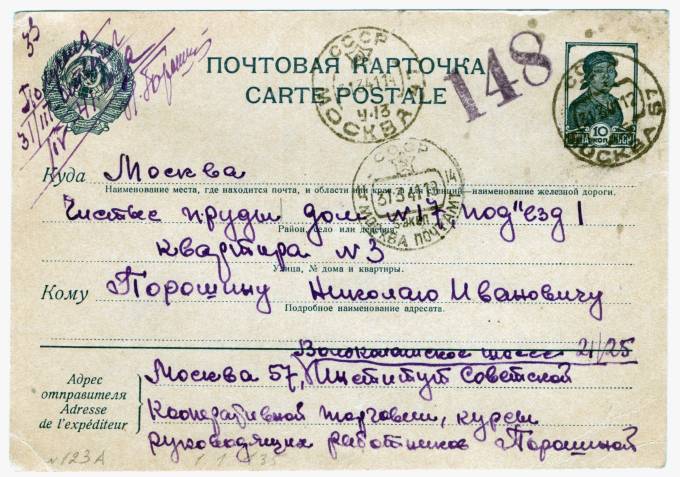 ПОЧТОВАЯ КАРТОЧКА
CARTE POSTALE
148
СССР
МОСКВА
СССР
МОСКВА 57
10 КОП.
СССР
31 3 41
МОСКВА ПОЧТАМТ
Куда Москва
Наименование места, где находится почта, и области или края, а для станций—наименование железной дороги.
Чистые пруды дом №17, под"езд 1
Район, село или деревня.
квартира №3
Улица, № дома и квартиры.
Кому Порошину Николаю Ивановичу
Подробное наименование адресата.
Волоколамское шоссе 21/25
Адрес отправителя
Adresse de l'expéditeur
Москва 57, Институт Советской
Кооперативной торговли, курсы
руководящих работников Порошиной
№123А